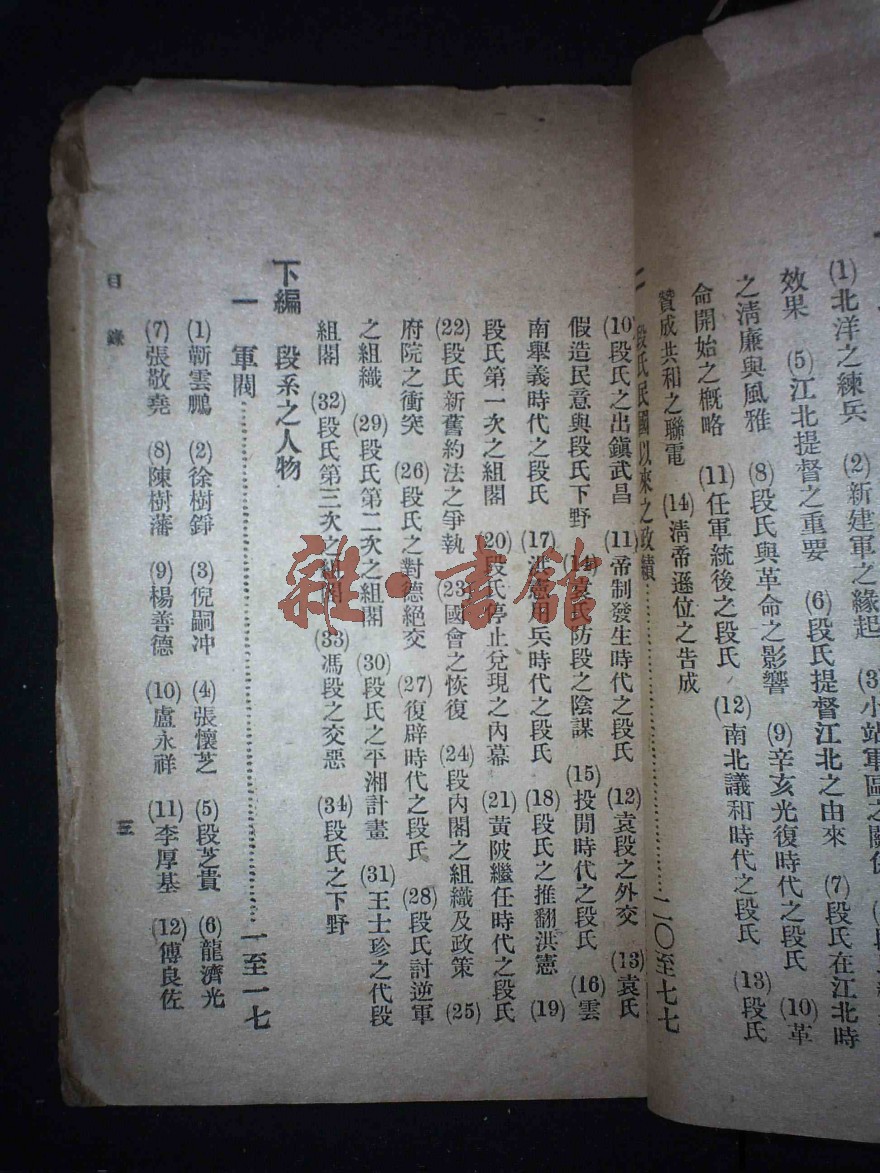 (1)北洋之練兵 (2)新建軍之緣起 (3)小站軍區之關係
效果 (5)江北提督之重要 (6)段氏提督江北之由來 (7)段氏在江北時
之淸廉與風雅 (8)段氏與革命之影響 (9)辛亥光復時代之段氏 (10)革
命開始之槪略 (11)任軍統後之段氏 (12)南北議和時代之段氏 (13)段氏
贊成共和之聯電 (14)淸帝遜位之告成
二 段氏民國以來之政績……二〇至七七
(10)段氏之出鎭武昌 (11)帝制發生時代之段氏 (12)袁段之外交 (13)袁氏
假造民意與段氏下野 (14)袁氏防段之陰謀 (15)投閒時代之段氏 (16)雲
南舉義時代之段氏 (17)洪憲用兵時代之段氏 (18)段氏之推翻洪憲 (19)
段氏第一次之組閣 (20)段氏停止兌現之內幕 (21)黃陂繼任時代之段氏
(22)段氏新舊約法之爭執 (23)國會之恢復 (24)段內閣之組織及政策 (25)
府院之衝突 (26)段氏之對德絕交 (27)復辟時代之段氏 (28)段氏討逆軍
之組織 (29)段氏第二次之組閣 (30)段氏之平湘計畫 (31)王士珍之代段
組閣 (32)段氏第三次之組閣 (33)馮段之交惡 (34)段氏之下野
下編 段系之人物
一 軍閥……一至一七
(1)靳雲鵬 (2)徐樹錚 (3)倪嗣冲 (4)張懷芝 (5)段芝貴 (6)龍濟光
(7)張敬堯 (8)陳樹藩 (9)楊善德 (10)盧永祥 (11)李厚基 (12)傅良佐
目錄 三
雜·書館